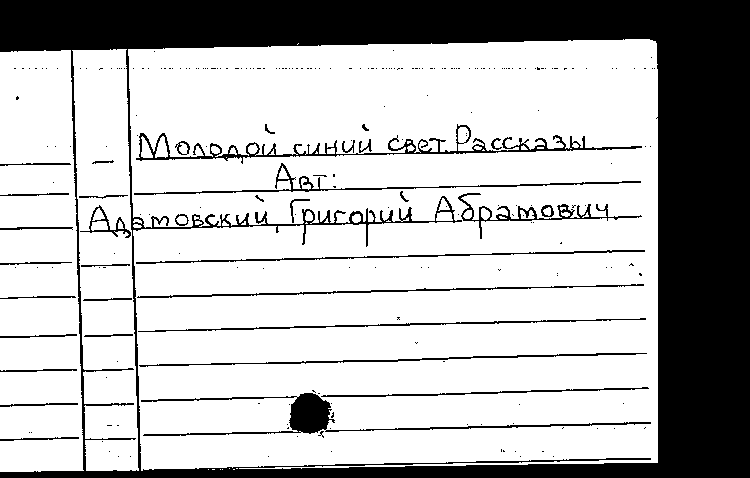 Молодой синий свет. Рассказы
Авт:
Адамовский, Григорий Абрамович.